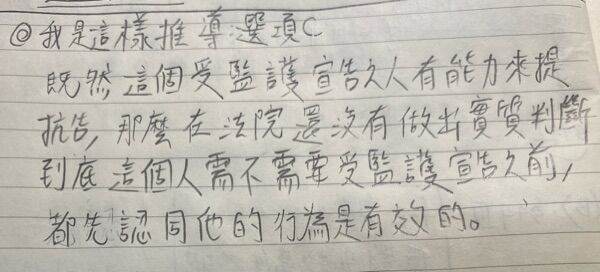 ◎我是這樣推導選項C
既然這個受監護宣告之人有能力來提
抗告，那麼在法院還沒有做出實質判斷
到底這個人需不需要受監護宣告之前，
都先認同他的行為是有效的。